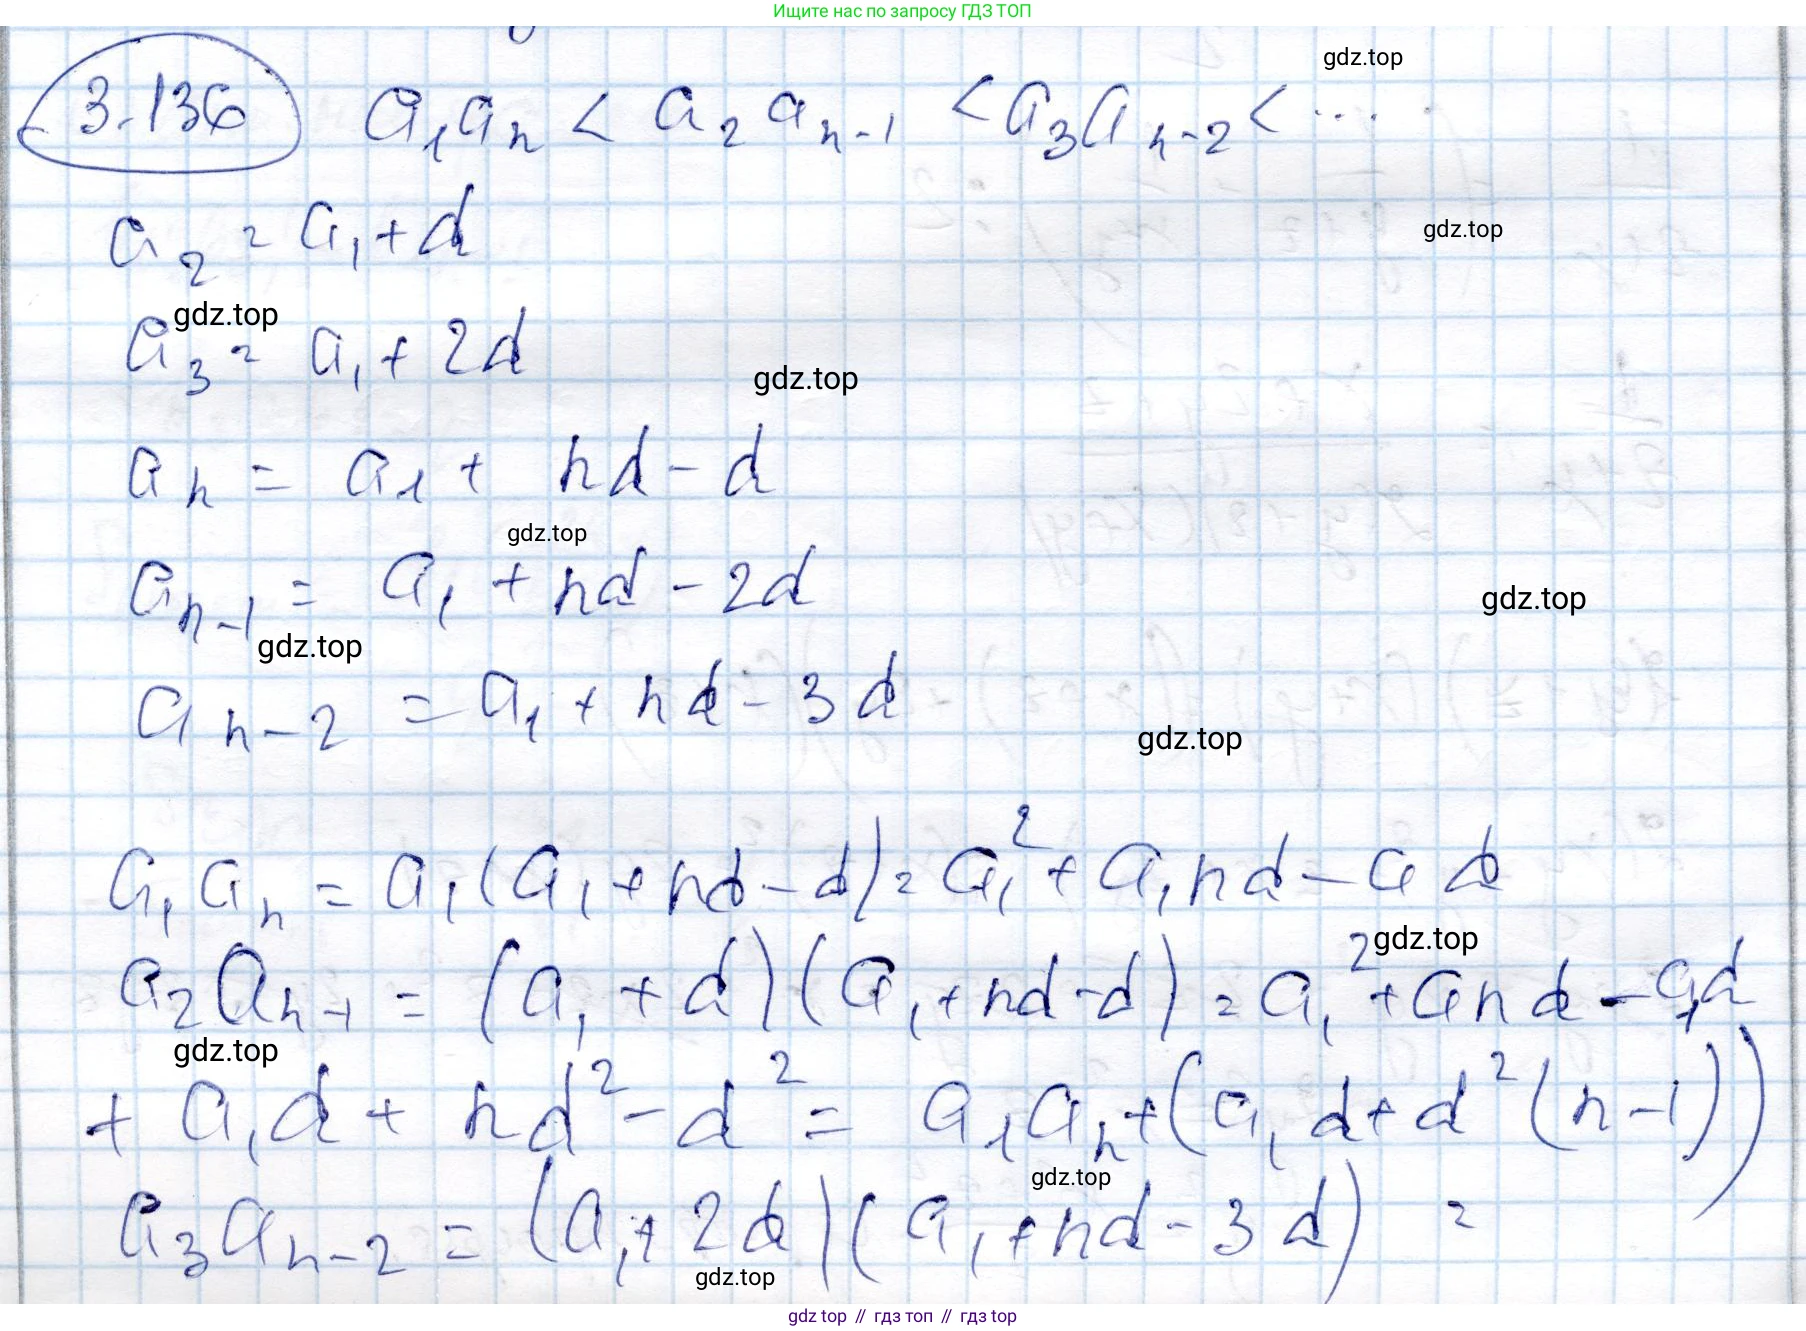 Ищите нас по запросу ГДЗ ТОП
gdz.top
3.136 a₁aₙ < a₂aₙ₋₁ < a₃aₙ₋₂ < ...
gdz.top
a₂ = a₁ + d
gdz.top
a₃ = a₁ + 2d
gdz.top
aₙ = a₁ + nd - d
gdz.top
aₙ₋₁ = a₁ + nd - 2d
gdz.top
gdz.top
aₙ₋₂ = a₁ + nd - 3d
gdz.top
a₁aₙ = a₁(a₁ + nd - d) = a₁² + a₁nd - ad
gdz.top
a₂aₙ₋₁ = (a₁ + d)(a₁ + nd - d) = a₁² + and - a₁d
gdz.top
+ a₁d + nd² - d² = a₁aₙ + (a₁d + d²(n-1))
gdz.top
a₃aₙ₋₂ = (a₁ + 2d)(a₁ + nd - 3d) =
gdz.top
gdz.top // гдз топ // gdz.top